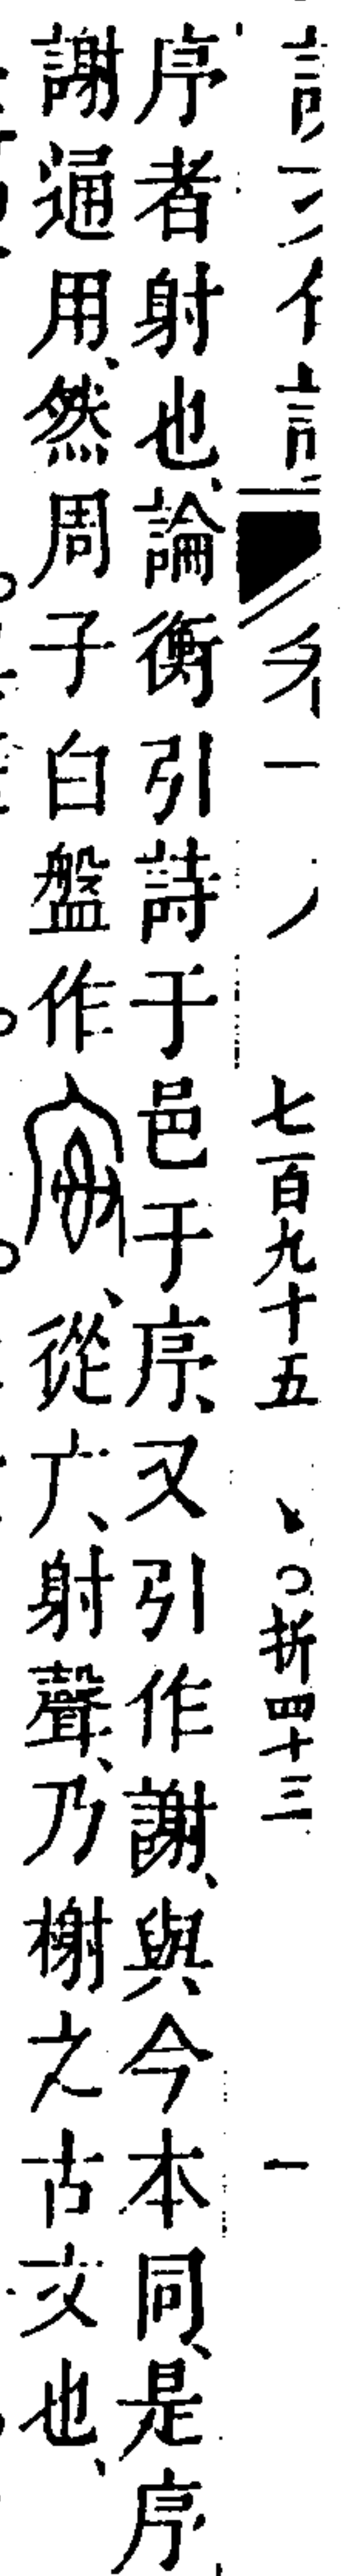 七百九十五 折四十三 一
序者射也、論衡引詩于邑于序、又引作謝、與今本同、是序
謝通用、然周子白盤作、從广、射聲、乃榭之古文也、